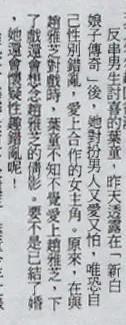 反串男生討喜的葉童，昨天透露在「新白
娘子傳奇」後，她對扮男人又愛又怕，唯恐自
己性別錯亂，愛上合作的女主角。原來，在與
趙雅芝對戲時，葉童不知不覺愛上趙雅芝，下
了戲還會想念趙雅芝的倩影。要不是已結了婚
，她還會懷疑性趣錯亂呢！